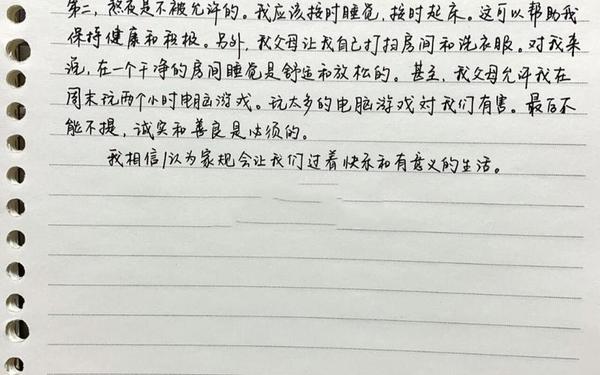 第二，熬夜是不被允许的。我应该按时睡觉，按时起床。这可以帮助我
保持健康和积极。另外，我父母让我自己打扫房间和洗衣服。对我来
说，在一个干净的房间睡觉是舒适和放松的。甚至，我父母允许我在
周末玩两个小时电脑游戏。玩太多的电脑游戏对我们有害。最后不
能不提，诚实和善良是必须的。
我相信/认为家规会让我们过着快乐和有意义的生活。